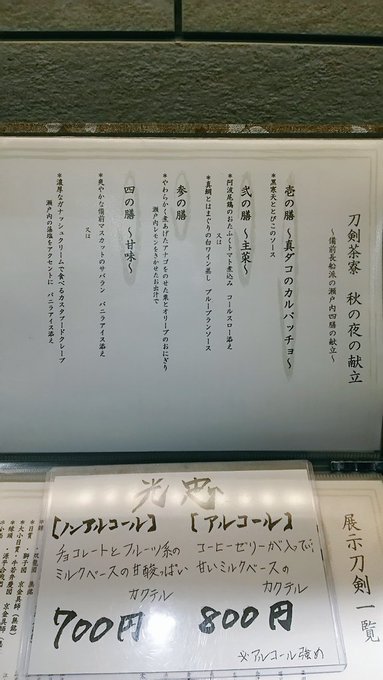 刀剣茶寮　秋の夜の献立
～備前長船派の瀬戸内四膳の献立～
壱の膳　～真ダコのカルパッチョ～
＊黒寒天ととびこのソース
弐の膳　～主菜～
＊阿波尾鶏のおたふくトマト煮込み　コールスロー添え
又は
＊真鯛とはまぐりの白ワイン蒸し　ブルーブランソース
参の膳
＊やわらかく煮あげたアナゴをのせた栗とオリーブのおにぎり
瀬戸内レモンをきかせたお出汁で
四の膳　～甘味～
＊爽やかな備前マスカットのサバラン　バニラアイス添え
又は
＊濃厚なガナッシュクリームで食べるカスタフードクレープ
瀬戸内の藻塩をアクセントに　バニラアイス添え
光忠
【アルコール】
コーヒーゼリーが入った
甘いミルクベースの
カクテル
800円
※アルコール強め
【ノンアルコール】
チョコレートとフルーツ系の
ミルクベースの甘酸っぱい
カクテル
700円
展示刀剣一覧